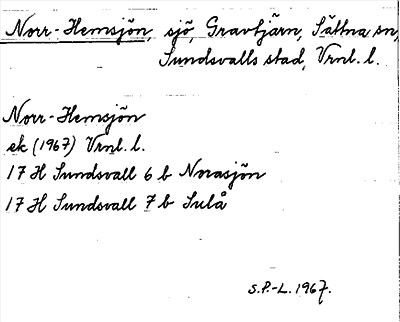 Norr-Hemsjön, sjö, Gravtjärn, Sättna sn,
Sundsvalls stad, Vrnl. l.
Norr-Hemsjön
ek (1967) Vrnl. l.
17 H Sundsvall 6 b Norasjön
17 H Sundsvall 7 b Sulå
S.P.-L. 1967.